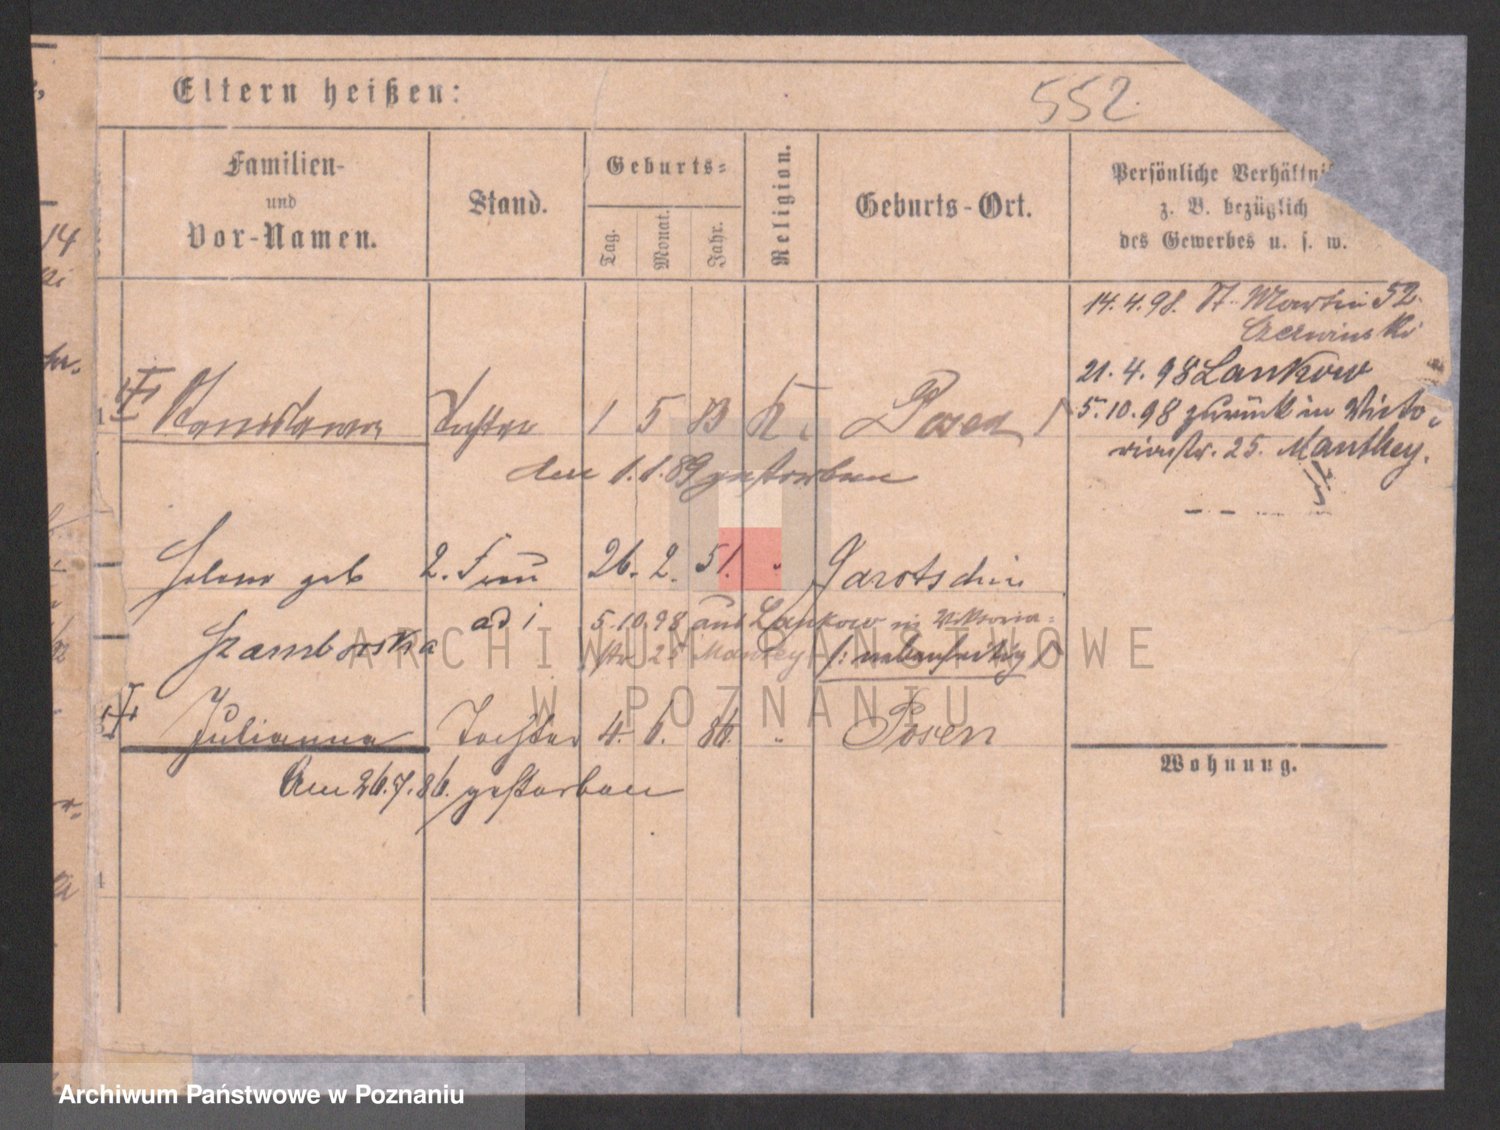 Eltern heißen:
552.
Familien-
und
Vor-Namen.
Stand.
Geburts-
Tag.
Monat.
Jahr.
Religion.
Geburts-Ort.
Persönliche Verhältni
z. B. bezüglich
des Gewerbes u. s. w.
14.4.98. St. Martin 52.
Czerwinski
21.4.98 Lankow
5.10.98 zurück in Victo-
riastr. 25. Manthey.
Stanislawa Tochter 1 5 83 k. Posen
den 1.1.89 gestorben
Helene geb 2. Frau 26. 2. 51. " Jarotschin
Szamborska ad 1 5.10.98 aus Lankow in Viktoria-
str 25 Mantey /: nebenseitig
Julianna Tochter 4. 6. 86. " Posen
Am 26.7.86. gestorben
Wohnung.
14
ARCHIWUM PAŃSTWOWE
W POZNANIU
Archiwum Państwowe w Poznaniu